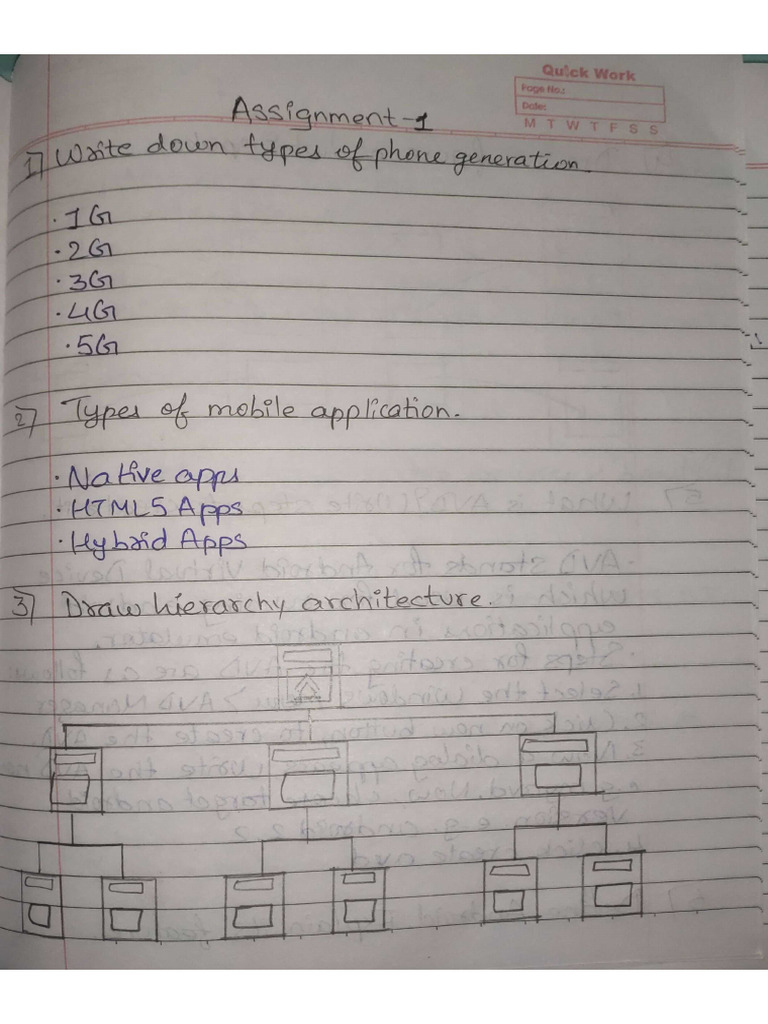 Quick Work
Page No.:
Date:
M T W T F S S
Assignment-1
1) Write down types of phone generation.
· 1G
· 2G
· 3G
· 4G
· 5G
2) Types of mobile application.
· Native apps
· HTML5 Apps
· Hybrid Apps
3) Draw hierarchy architecture.